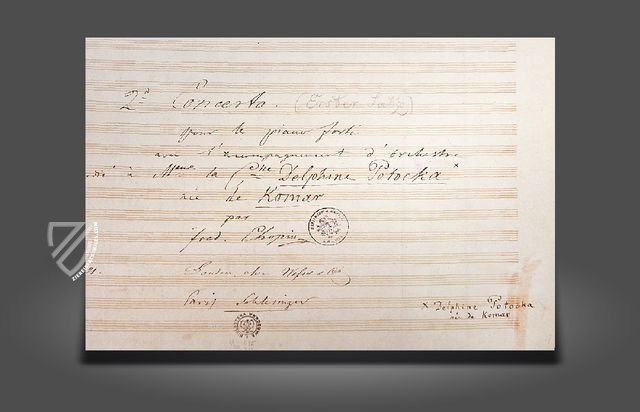 2d Concerto. (Erster Satz)
pour le piano forte
avec l'accompagnement d'orchestre
dié à Madame la Ctesse Delphine Potocka x
née de Komar
par
fred. Chopin
London, chez Wessel &
Paris Schlesinger
x Delphine Potocka
née de Komar